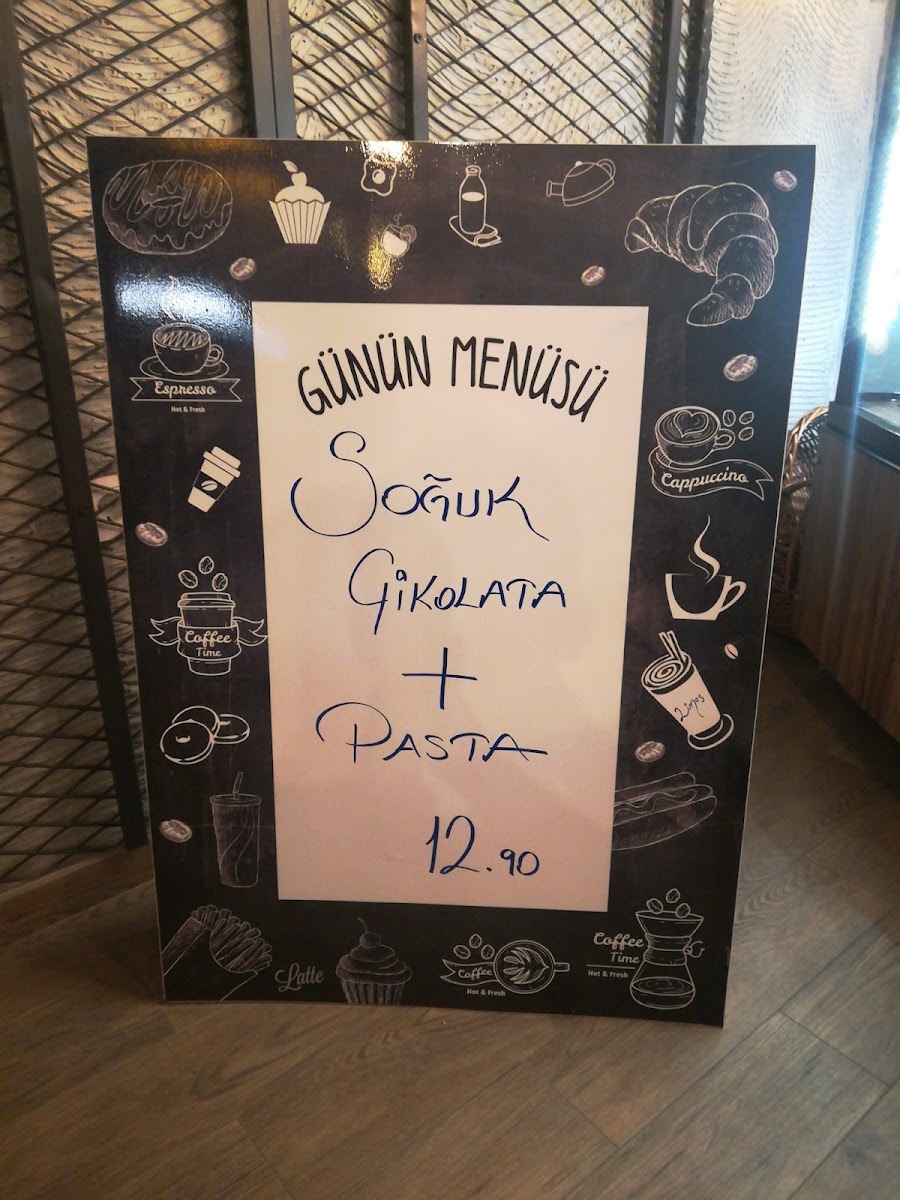 GÜNÜN MENÜSÜ
Espresso
Hot & Fresh
SOĞUK
ÇİKOLATA
+
PASTA
12.90
Cappuccino
Coffee
Time
Latte
Coffee
Hot & Fresh
Coffee
Time
Hot & Fresh